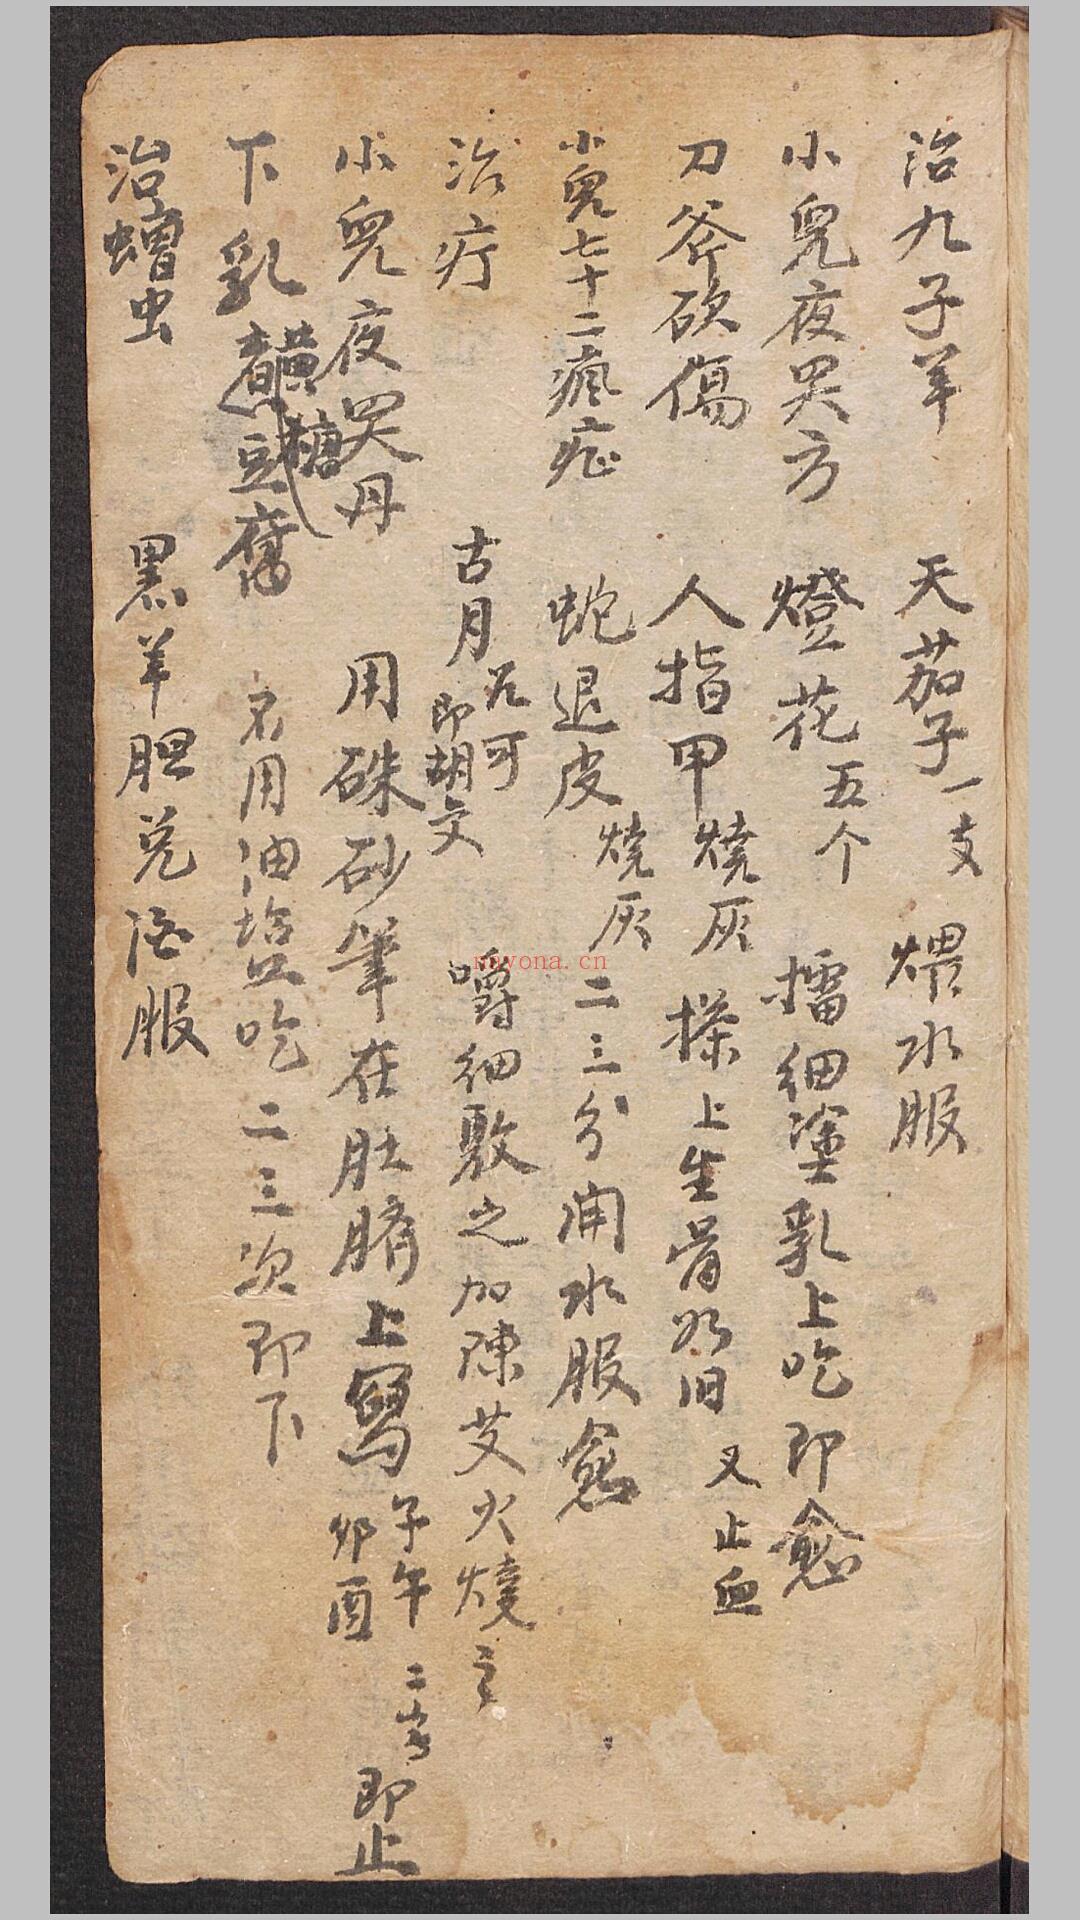 治九子羊 天茄子一支 煨水服
小兒夜哭方 燈花五个 擂細塗乳上吃即愈
刀斧砍傷 人指甲燒灰 搽上生骨如旧 又止血
小兒七十二瘋症 蛇退皮燒灰二三分 開水服愈
治疔 古月 即胡 可 嚼細敷之加陳艾火燒之
小兒夜哭丹 用硃砂筆在肚臍上寫 子午卯酉 二字 即止
下乳 糖 豆腐 不用油塩吃二三次即下
治蟬虫 黑羊胆兑酒服
nayona.cn